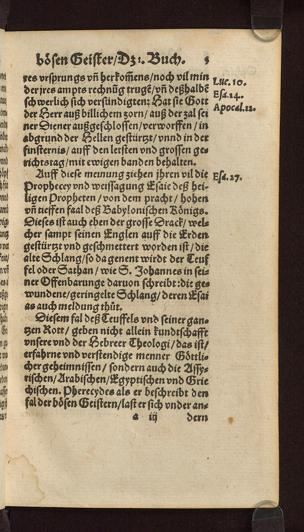 bösen Geister/Dz 1. Buch. 5
res vrsprungs vñ herkom̃ens/noch vil min
der jres ampts rechnũg trugẽ/vñ deßhalbẽ
schwerlich sich versündigten: Hat sie Gott
der Herr auß billichem zorn/auß der zal sei
ner Diener außgeschlossen/verworffen/in
abgrund der Hellen gestürtzt/vnnd in der
finsternis/auff den letsten vnd grossen ge
richtstag/mit ewigen banden behalten.
Luc. 10.
Esa. 14.
Apocal. 12.
Auff diese meinung ziehen jhren vil die
Prophecey vnd weissagung Esaie deß hei-
ligen Propheten/von dem pracht/hohen
vñ tieffen faal deß Babylonischen Königs.
Esa. 27.
Dieses ist auch eben der grosse Drack/wel-
cher sampt seinen Englen auff die Erden
gestürtzt vnd geschmettert worden ist/die
alte Schlang/so da genent wirdt der Teuf
fel oder Sathan/wie S. Johannes in sei-
ner Offenbarunge daruon schreibt: die ge-
wundene/geringelte Schlang/deren Esai
as auch meldung thůt.
Diesem fal deß Teuffels vnd seiner gan-
tzen Rott/geben nicht allein kundtschafft
vnsere vnd der Hebreer Theologi/das ist/
erfahrne vnd verstendige menner Göttli-
cher geheimnissen/sondern auch die Assy-
rischen/Arabischen/Egyptischen vnd Grie
chischen. Pherecydes als er beschreibt den
fal der bösen Geistern/last er sich vnder an-
a iij dern